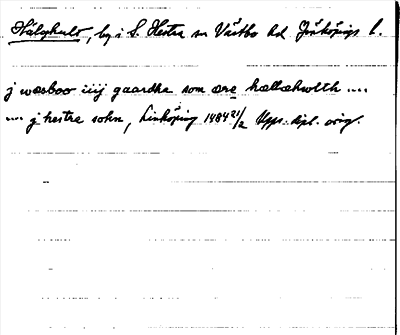 Hälghult, by i S. Hestra sn Västbo hd Jönköpings l.
j wæsboo iiij gaardha som ære hællæhwlth ....
.... j hestra sokn, Linköping 1484 21/2 Upps. dpl. orig.